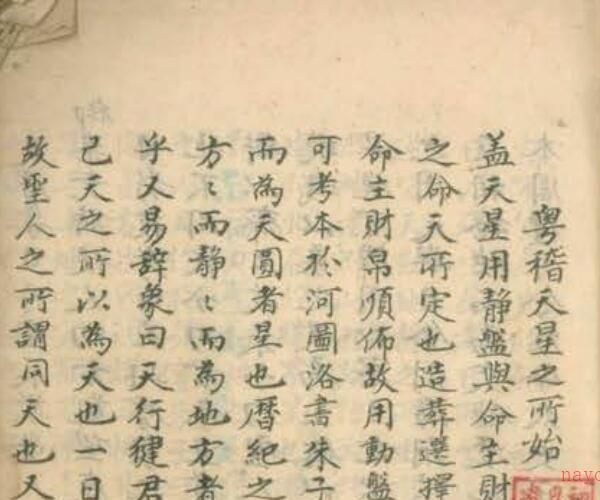 粤稽天星之所始
盖天星用静盤與命主財
之命天所定也造葬選擇
命主財帛順佈故用動盤
可考本於河圖洛書朱子
而為天圓者星也曆紀之
方〻而静〻而為地方者
乎又易辭象曰天行健君
已天之所以為天也一日
故聖人之所謂同天也又
nayo